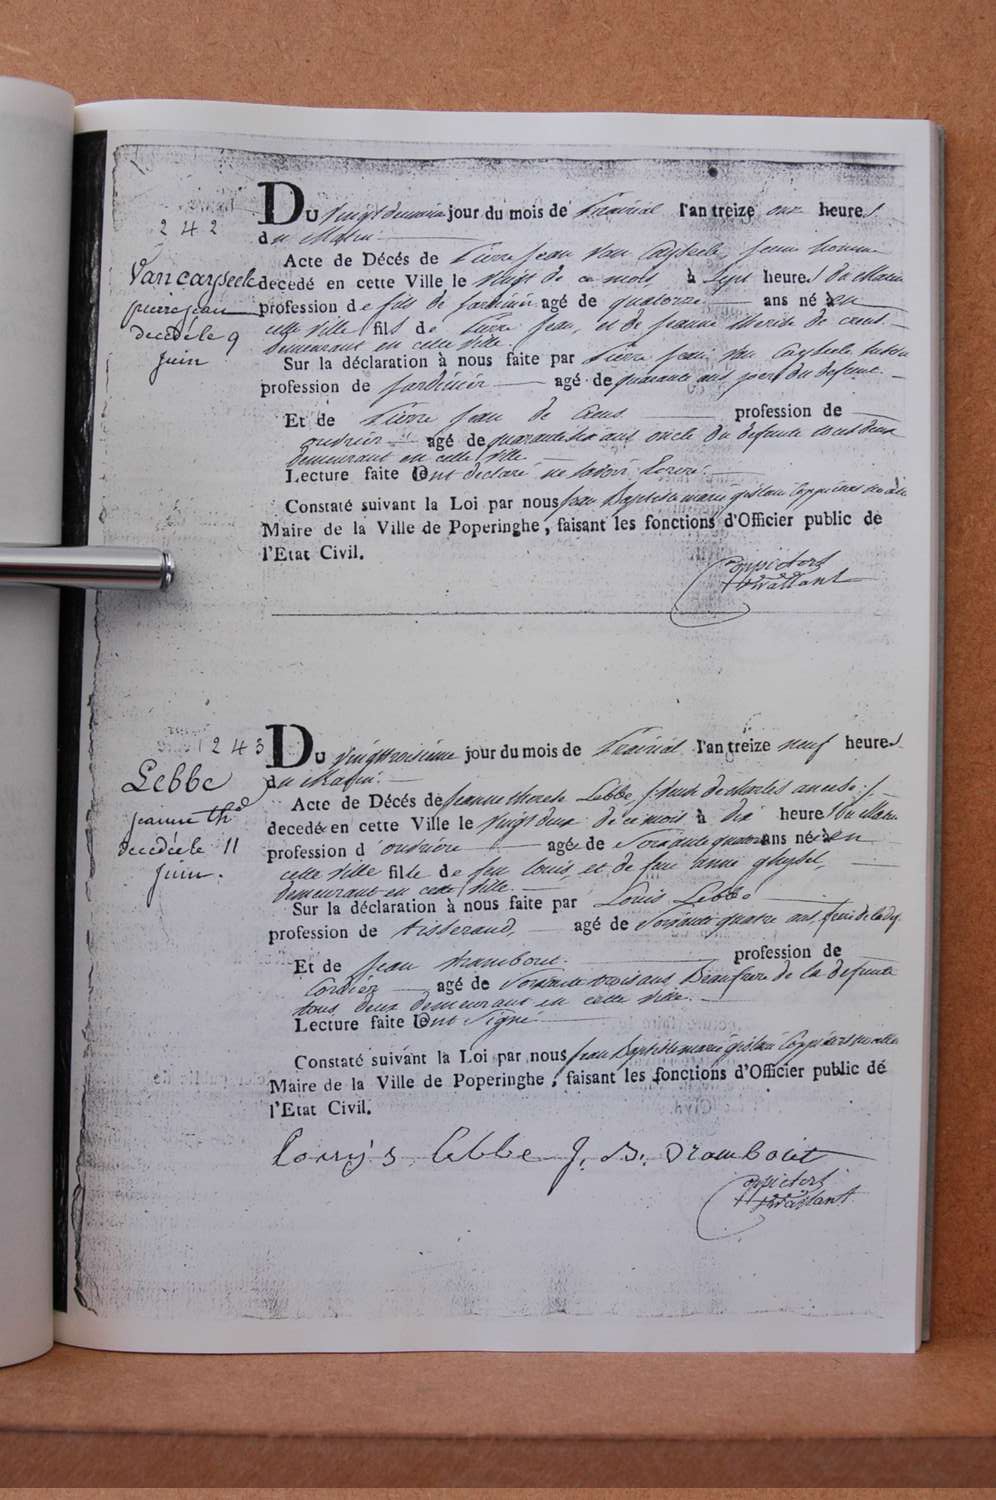 242
Du Vingt deuxieme jour du mois de Prairial l'an treize onze heures
du Matin
Vancayseele
pierre jean
decédé le 9
juin
Acte de Décés de Pierre Jean Van Cayseele, jeune homme
decedé en cette Ville le Vingt de ce mois à Sept heures du Matin
profession de fils de jardinier agé de quatorze ans né en
cette ville fils de Pierre Jean, et de Jeanne de
demeurant en cette Ville
Sur la déclaration à nous faite par Pierre Jean Van Cayseele
profession de Jardinier agé de quarante ans pere du defunt
Et de Pierre Jean de profession de
ouvrier agé de quarante six ans oncle du defunt tous deux
demeurant en cette Ville
Lecture faite ont declaré ne savoir
Constaté suivant la Loi par nous Jean Baptiste marie gislain
Maire de la Ville de Poperinghe, faisant les fonctions d'Officier public de
l'Etat Civil.
243
Du Vingt troisieme jour du mois de Prairial l'an treize neuf heures
du Matin
Lebbe
jeanne thé
decédée le 11
juin.
Acte de Décés de Jeanne therese Lebbe
decedée en cette Ville le Vingt deux de ce mois à dix heures du Matin
profession d'ouvriere agée de Soixante quatre ans née en
cette ville fille de feu Louis, et de feu Anne ghysel,
demeurant en cette Ville
Sur la déclaration à nous faite par Louis Lebbe
profession de tisserand, agé de Soixante quatre ans, frere de la
Et de Jean Dramboui profession de
Cordier agé de Soixante trois ans Beaufrere de la defunte
tous deux demeurant en cette Ville.
Lecture faite ont Signé
Constaté suivant la Loi par nous Jean Baptiste marie gislain
Maire de la Ville de Poperinghe, faisant les fonctions d'Officier public de
l'Etat Civil.
Lebbe J. B. Dramboui